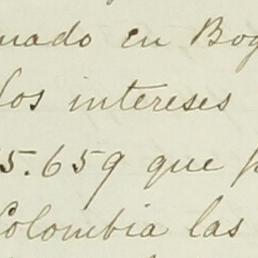 nado en Bog
los intereses
5.659 que p
Colombia las